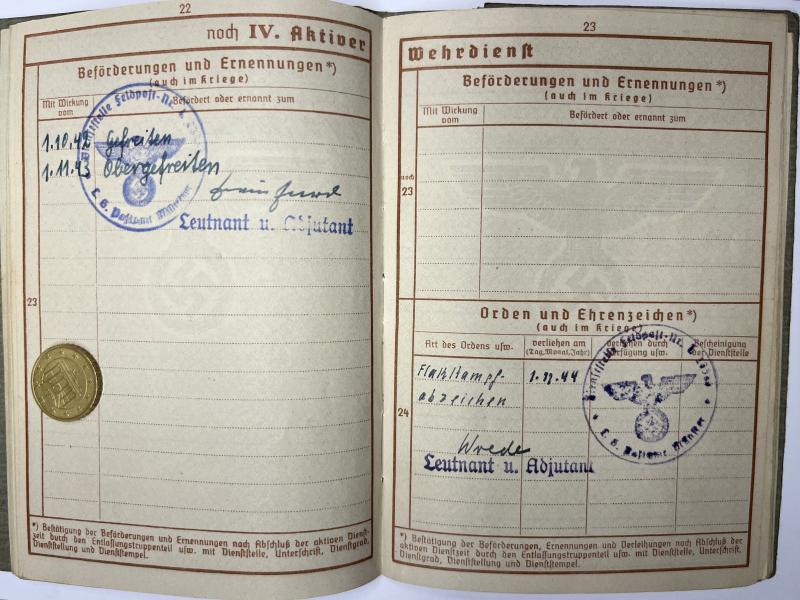 22
noch IV. Aktiver
Beförderungen und Ernennungen*)
(auch im Kriege)
Mit Wirkung vom
Befördert oder ernannt zum
1.10.42 Gefreiten
1.11.43 Obergefreiten
Leutnant u. Adjutant
Dienststelle Feldpost-Nr. L
L. G. Postamt
23
*) Bestätigung der Beförderungen und Ernennungen nach Abschluß der aktiven Dienst-
zeit durch den Entlassungstruppenteil usw. mit Dienststelle, Unterschrift, Dienstgrad,
Dienststellung und Dienststempel.
23
Wehrdienst
Beförderungen und Ernennungen*)
(auch im Kriege)
Mit Wirkung vom
Befördert oder ernannt zum
noch
23
Orden und Ehrenzeichen*)
(auch im Kriege)
Art des Ordens usw.
verliehen am
(Tag, Monat, Jahr)
verliehen durch
Verfügung usw.
Bescheinigung
der Dienststelle
Flakkampf-
abzeichen
1.11.44
Dienststelle Feldpost-Nr. L
L. G. Postamt
24
Wrede
Leutnant u. Adjutant
*) Bestätigung der Beförderungen, Ernennungen und Verleihungen nach Abschluß der
aktiven Dienstzeit durch den Entlassungstruppenteil usw. mit Dienststelle, Unterschrift,
Dienstgrad, Dienststellung und Dienststempel.